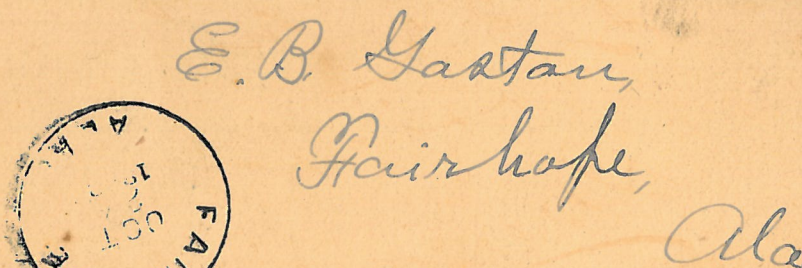 E. B. Gaston,
Fairhope,
Ala
OCT